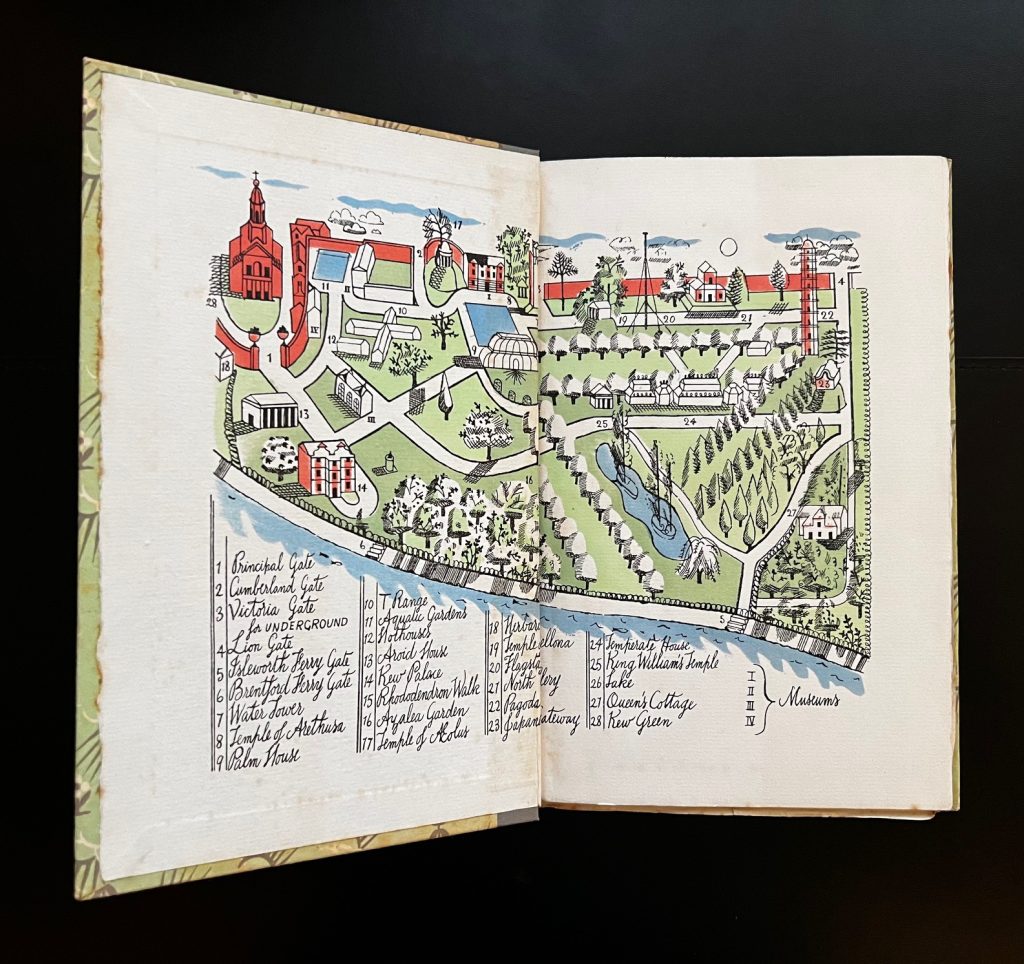 1 Principal Gate
2 Cumberland Gate
3 Victoria Gate
for UNDERGROUND
4 Lion Gate
5 Isleworth Ferry Gate
6 Brentford Ferry Gate
7 Water Tower
8 Temple of Arethusa
9 Palm House
10 T. Range
11 Aquatic Gardens
12 Hothouses
13 Aroid House
14 Kew Palace
15 Rhododendron Walk
16 Azalea Garden
17 Temple of Æolus
18 Herbar
19 Temple ellona
20 Flagsta
21 North lery
22 Pagoda
23 Japan ateway
24 Temperate House
25 King William's Temple
26 Lake
27 Queen's Cottage
28 Kew Green
I
II
III
IV
Museums